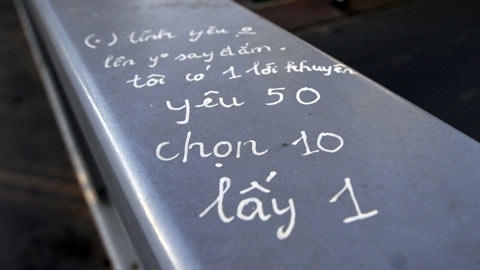 (.) tình yêu o
lên yº say đắm.
tôi có 1 lời khuyên
yêu 50
chọn 10
lấy 1